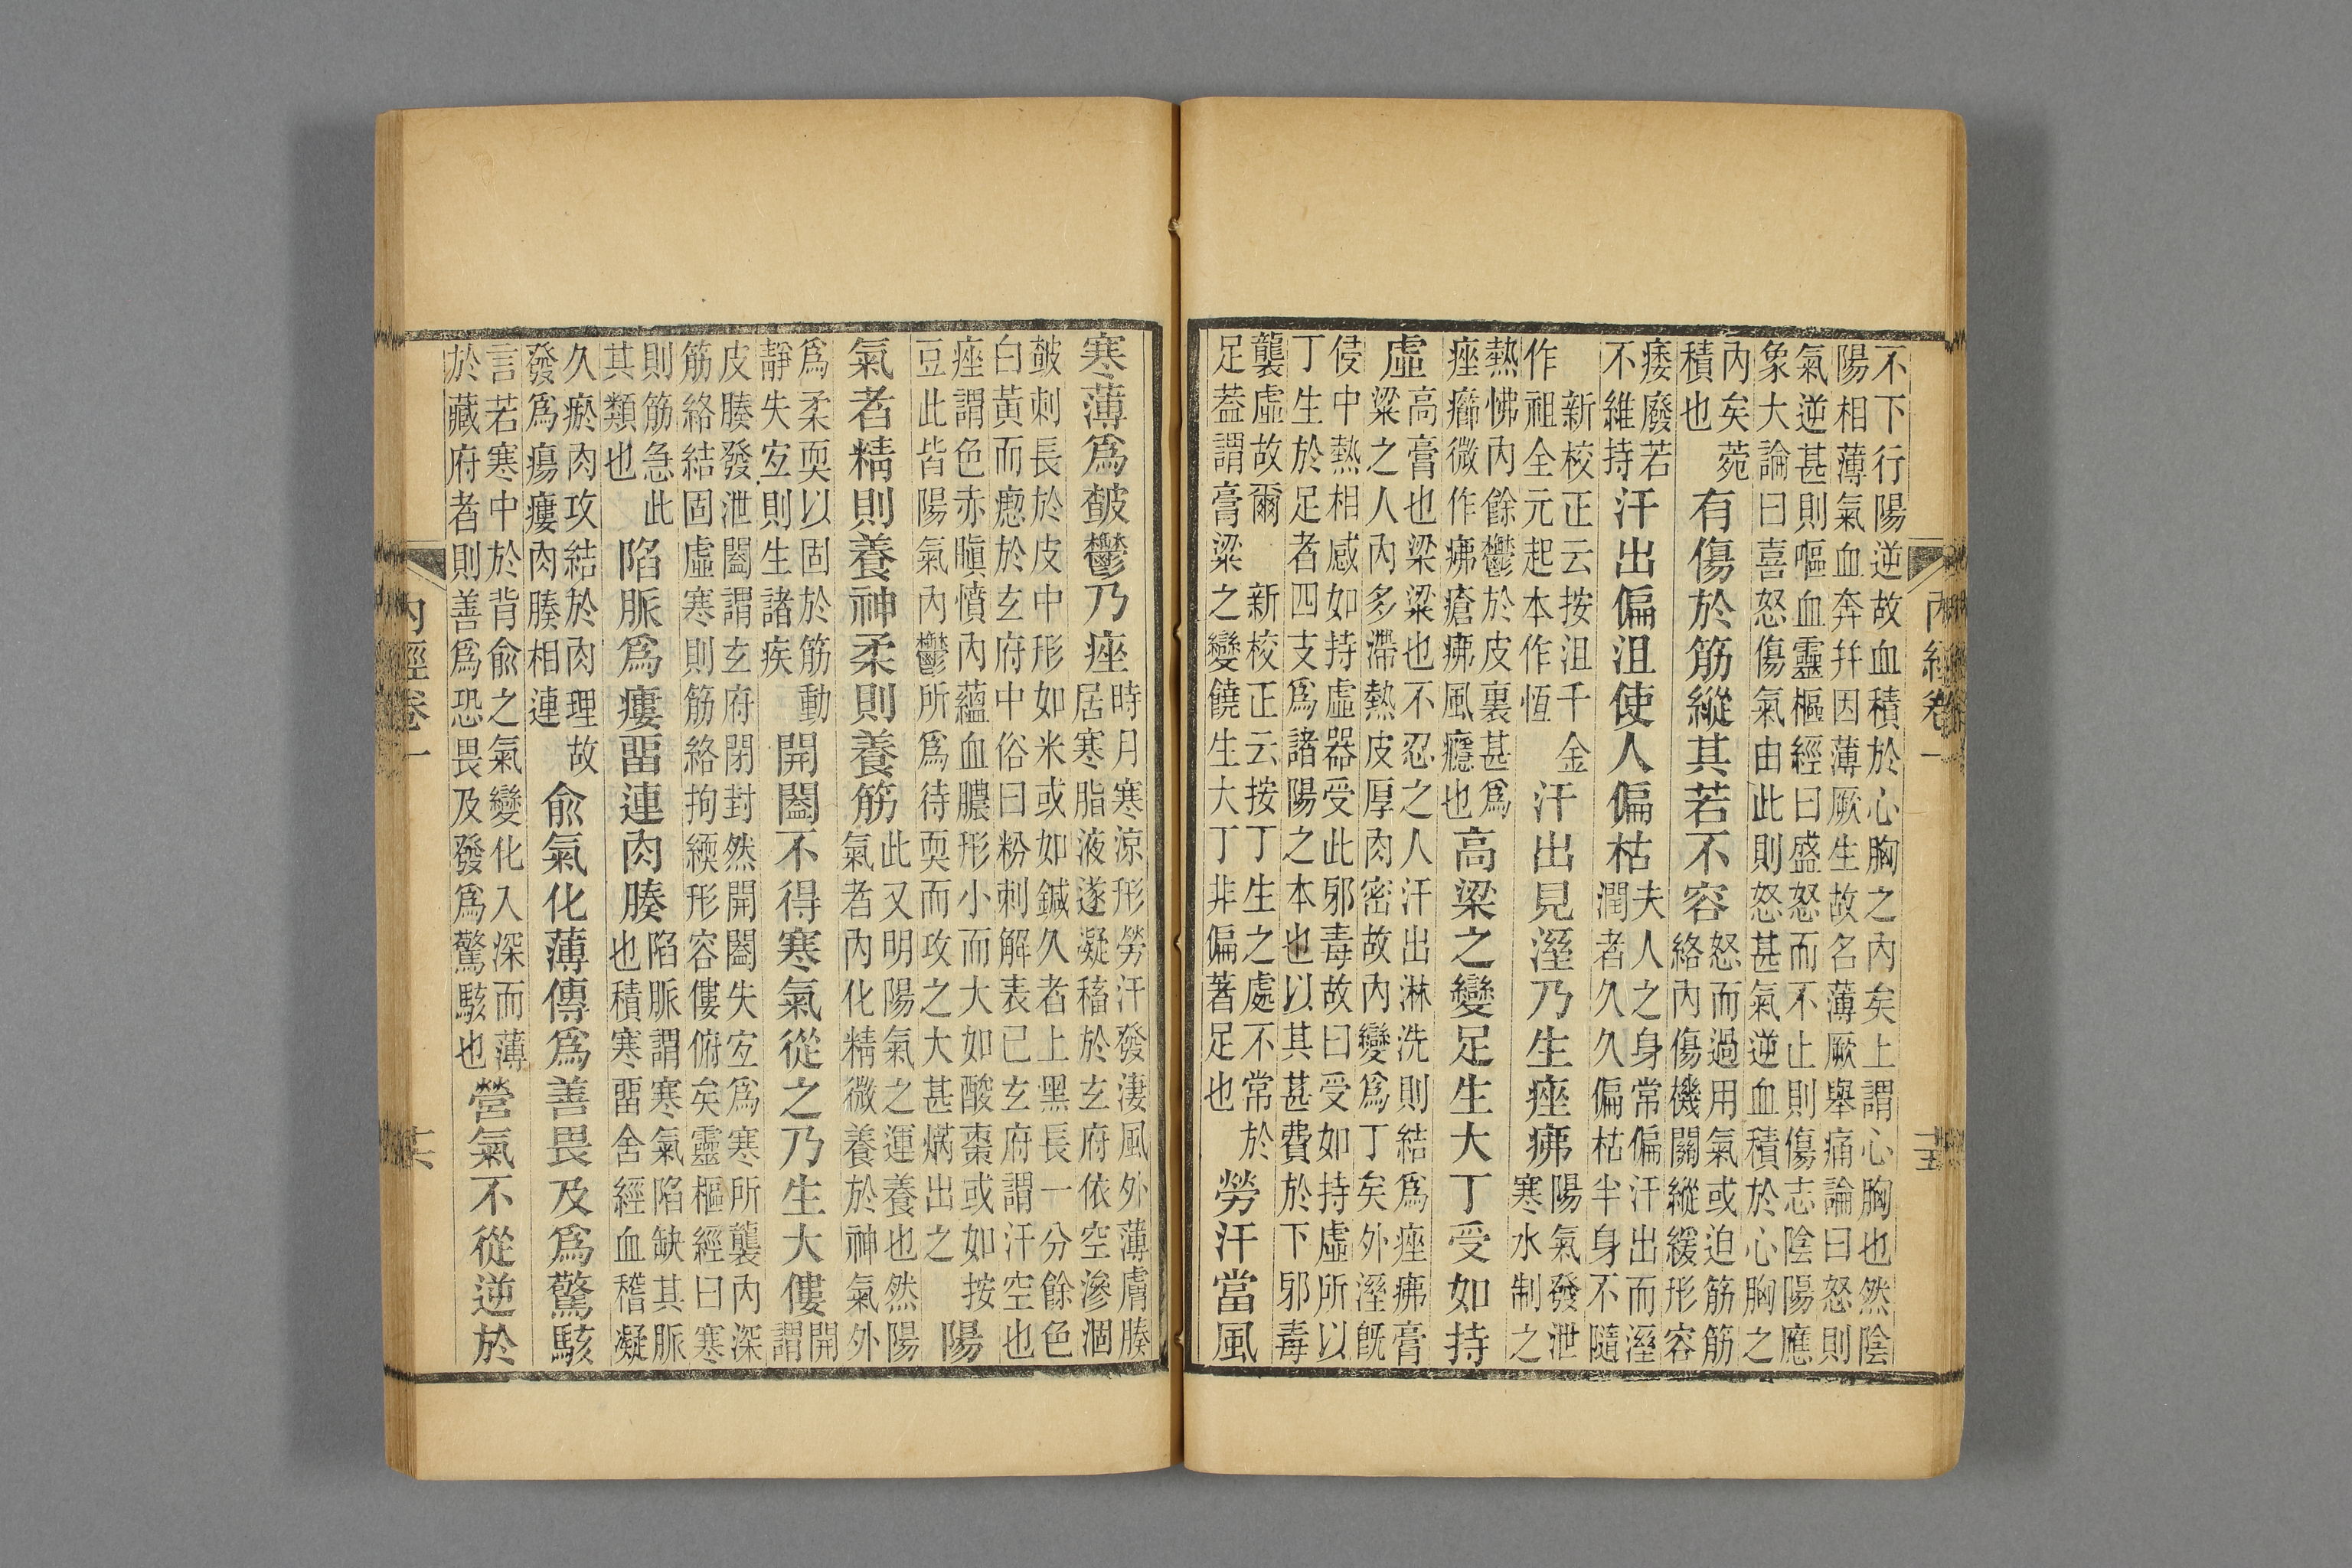 內經卷一
不下行陽逆故血積於心胸之內矣上謂心胸也然陰
陽相薄氣血奔并因薄厥生故名薄厥舉痛論曰怒則
氣逆甚則嘔血靈樞經曰盛怒而不止則傷志陰陽應
象大論曰喜怒傷氣由此則怒甚氣逆血積於心胸之
內矣菀
積也
有傷於筋縱其若不容
怒而過用氣或迫筋筋
絡內傷機關縱緩形容
痿廢若
不維持
汗出偏沮使人偏枯
夫人之身常偏汗出而溼
潤者久久偏枯半身不隨
新校正云按沮千金
作祖全元起本作恆
汗出見溼乃生痤疿
陽氣發泄
寒水制之
熱怫內餘鬱於皮裏甚爲
痤癤微作疿瘡疿風癮也
高梁之變足生大丁受如持
虛
高膏也梁粱也不忍之人汗出淋洗則結爲痤疿膏
粱之人內多滯熱皮厚肉密故內變爲丁矣外溼旣
侵中熱相感如持虛器受此邪毒故曰受如持虛所以
丁生於足者四支爲諸陽之本也以其甚費於下邪毒
襲虛故爾 新校正云按丁生之處不常於
足葢謂膏粱之變饒生大丁非偏著足也
勞汗當風
寒薄爲皶鬱乃痤
時月寒涼形勞汗發淒風外薄膚腠
居寒脂液遂凝稸於玄府依空滲涸
皶刺長於皮中形如米或如鍼久者上黑長一分餘色
白黃而瘛於玄府中俗曰粉刺解表已玄府謂汗空也
痤謂色赤䐜憤內蘊血膿形小而大如酸棗或如按
豆此皆陽氣內鬱所爲待耎而攻之大甚焫出之
陽
氣者精則養神柔則養筋
此又明陽氣之運養也然陽
氣者內化精微養於神氣外
爲柔耎以固於筋動
靜失宐則生諸疾
開闔不得寒氣從之乃生大僂
開
謂
皮腠發泄闔謂玄府閉封然開闔失宐爲寒所襲內深
筋絡結固虛寒則筋絡拘緛形容僂俯矣靈樞經曰寒
則筋急此
其類也
陷脈爲瘻畱連肉腠
陷脈謂寒氣陷缺其脈
也積寒畱舍經血稽凝
久瘀肉攻結於肉理故
發爲瘍瘻肉腠相連
俞氣化薄傳爲善畏及爲驚駭
言若寒中於背俞之氣變化入深而薄
於藏府者則善爲恐畏及發爲驚駭也
營氣不從逆於
內經卷一